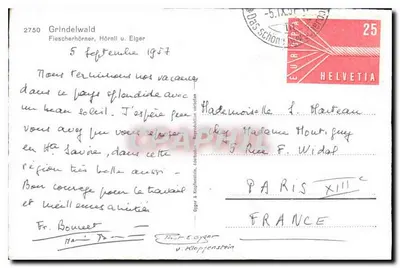 2750 Grindelwald
Fiescherhörner, Hörnli u. Eiger
5 Septembre 1957
Nous terminons nos vacances
dans ce pays splendide avec
un beau soleil. J'espère que
vous avez pu vous reposer
en Hte Savoie, dans cette
région très belle aussi -
Bon courage pour le travail
et meilleures amitiés
Fr. Bonnet
v. Kloppenstein
-5.IX.57
EUROPA
25
HELVETIA
Mademoiselle S. Marteau
chez Madame Montiguy
5 Rue F. Widal
PARIS XIIIe
FRANCE